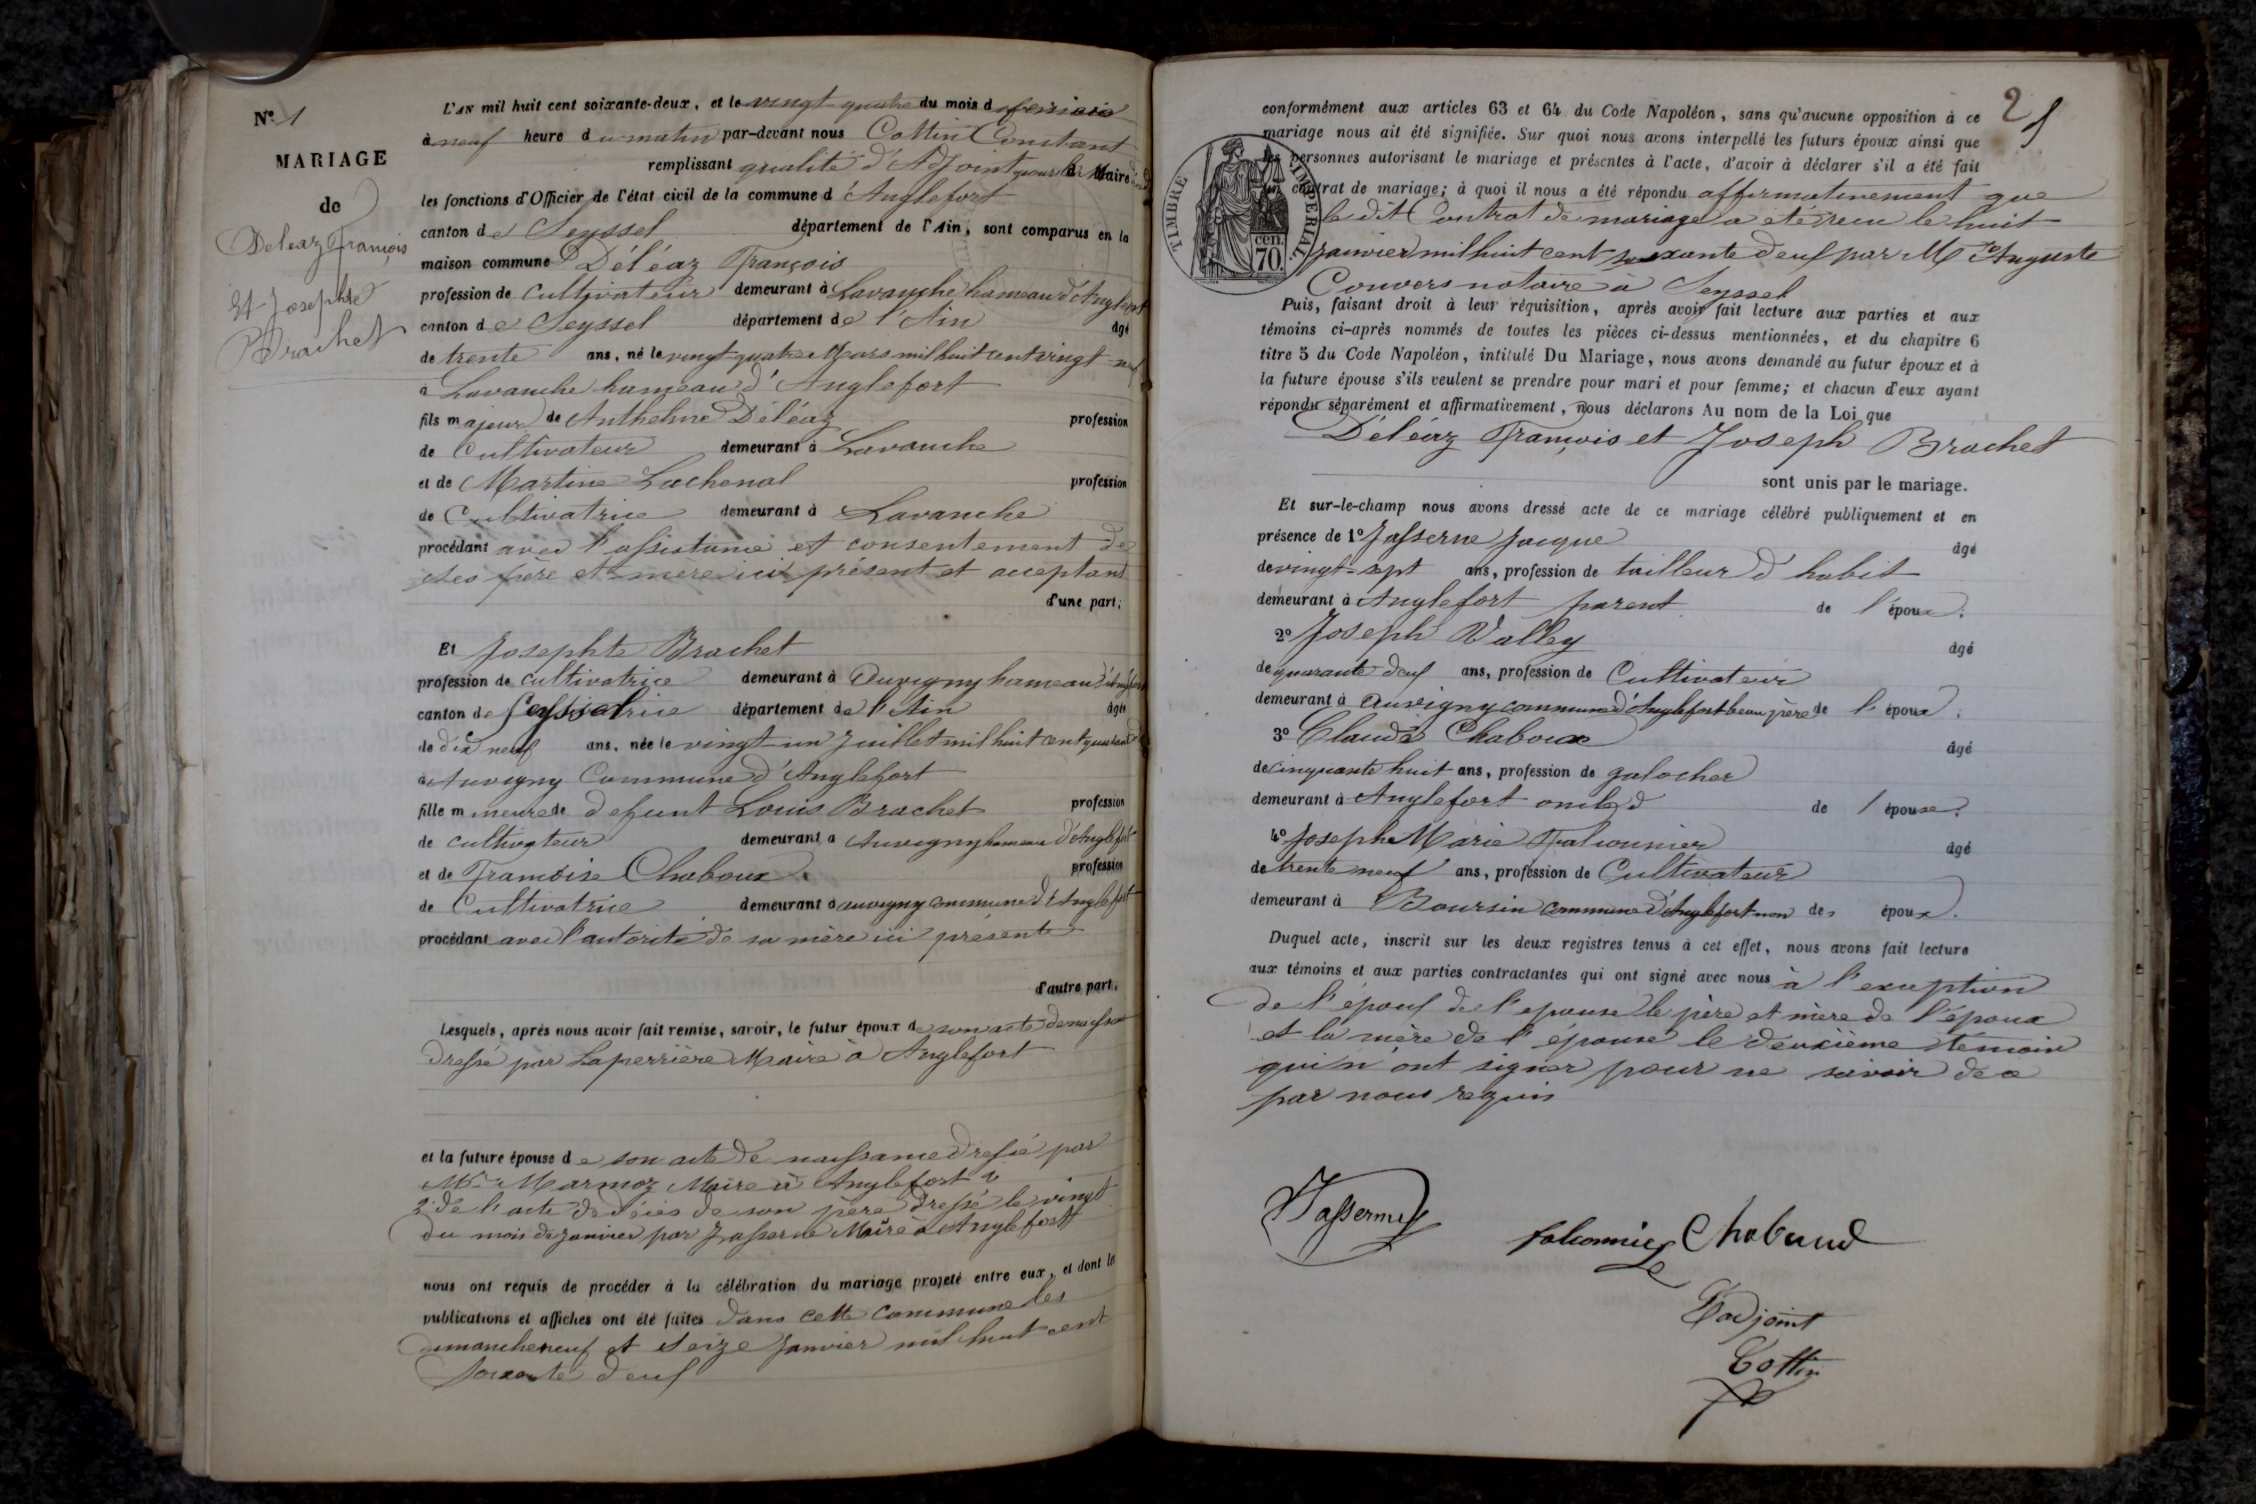 N° 1
MARIAGE
de
Deléaz François
et Josephte
Brachet
L'AN mil huit cent soixante-deux, et le vingt quatre du mois de
à neuf heure du matin par-devant nous Cottin Constant
remplissant qualité d'Adjoint pour le Maire
les fonctions d'Officier de l'état civil de la commune d'Anglefort
canton de Seyssel département de l'Ain, sont comparus en la
maison commune Déléaz François
profession de cultivateur demeurant à Lavanche hameau d'Anglefort
canton de Seyssel département de l'Ain âgé
de trente ans, né le vingt quatre Mars mil huit cent vingt
à Lavanche hameau d'Anglefort
fils majeur de Anthelme Déléaz profession
de Cultivateur demeurant à Lavanche
et de Martine Lachenal profession
de Cultivatrice demeurant à Lavanche
procédant avec l'assistance et consentement de
ses père et mère ici présent et acceptant
d'une part;
Et Josephte Brachet
profession de cultivatrice demeurant à Auvigny hameau d'Anglefort
canton de Seyssel département de l'Ain âgée
de dix neuf ans, née le vingt un Juillet mil huit cent quarante
à Auvigny Commune d'Anglefort
fille mineure de défunt Louis Brachet profession
de cultivateur demeurant à Auvigny hameau d'Anglefort
et de Francoise Chaboux profession
de Cultivatrice demeurant à auvigny commune d'Anglefort
procédant avec l'autorité de sa mère ici présente
d'autre part.
Lesquels, après nous avoir fait remise, savoir, le futur époux de son acte de naissance
dressé par Laperrière Maire à Anglefort
et la future épouse de son acte de naissance dressé par
Mr Marmoz Maire à Anglefort
2° de l'acte de décès de son père dressé le vingt
du mois de janvier par Jasserne Maire à Anglefort
nous ont requis de procéder à la célébration du mariage projeté entre eux, et dont les
publications et affiches ont été faites dans cette commune les
dimanche neuf et seize Janvier mil huit cent
soixante deux
2
conformément aux articles 63 et 64 du Code Napoléon, sans qu'aucune opposition à ce
mariage nous ait été signifiée. Sur quoi nous avons interpellé les futurs époux ainsi que
les personnes autorisant le mariage et présentes à l'acte, d'avoir à déclarer s'il a été fait
un contrat de mariage; à quoi il nous a été répondu affirmativement que
le dit Contrat de mariage a été recu le huit
janvier mil huit cent soixante deux par Me Auguste
Convers notaire à Seyssel
TIMBRE IMPÉRIAL
70 cen.
Puis, faisant droit à leur réquisition, après avoir fait lecture aux parties et aux
témoins ci-après nommés de toutes les pièces ci-dessus mentionnées, et du chapitre 6
titre 5 du Code Napoléon, intitulé Du Mariage, nous avons demandé au futur époux et à
la future épouse s'ils veulent se prendre pour mari et pour femme; et chacun d'eux ayant
répondu séparément et affirmativement, nous déclarons Au nom de la Loi que
Déléaz François et Joseph Brachet
sont unis par le mariage.
Et sur-le-champ nous avons dressé acte de ce mariage célébré publiquement et en
présence de 1° Jasserne Jacque âgé
de vingt-sept ans, profession de tailleur d'habit
demeurant à Anglefort parent de l'époux;
2° Joseph Valley âgé
de quarante deux ans, profession de Cultivateur
demeurant à Auvigny commune d'Anglefort beau père de l'époux;
3° Claude Chaboux âgé
de cinquante huit ans, profession de galocher
demeurant à Anglefort oncle de l'épouse;
4° Joseph Marie Falconnier âgé
de trente neuf ans, profession de Cultivateur
demeurant à Boursin commune d'Anglefort non des époux.
Duquel acte, inscrit sur les deux registres tenus à cet effet, nous avons fait lecture
aux témoins et aux parties contractantes qui ont signé avec nous à l'exception
de l'époux de l'epouse le père et mère de l'époux
et la mère de l'épouse le deuxième témoin
qui n'ont signer pour ne savoir de ce
par nous requis
Jasserme
falconnier Chaboud
L'adjoint
Cottin